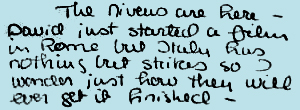 The Nivens are here -
David just started a film
in Rome but Italy has
nothing but strikes so I
wonder just how they will
ever get it finished -